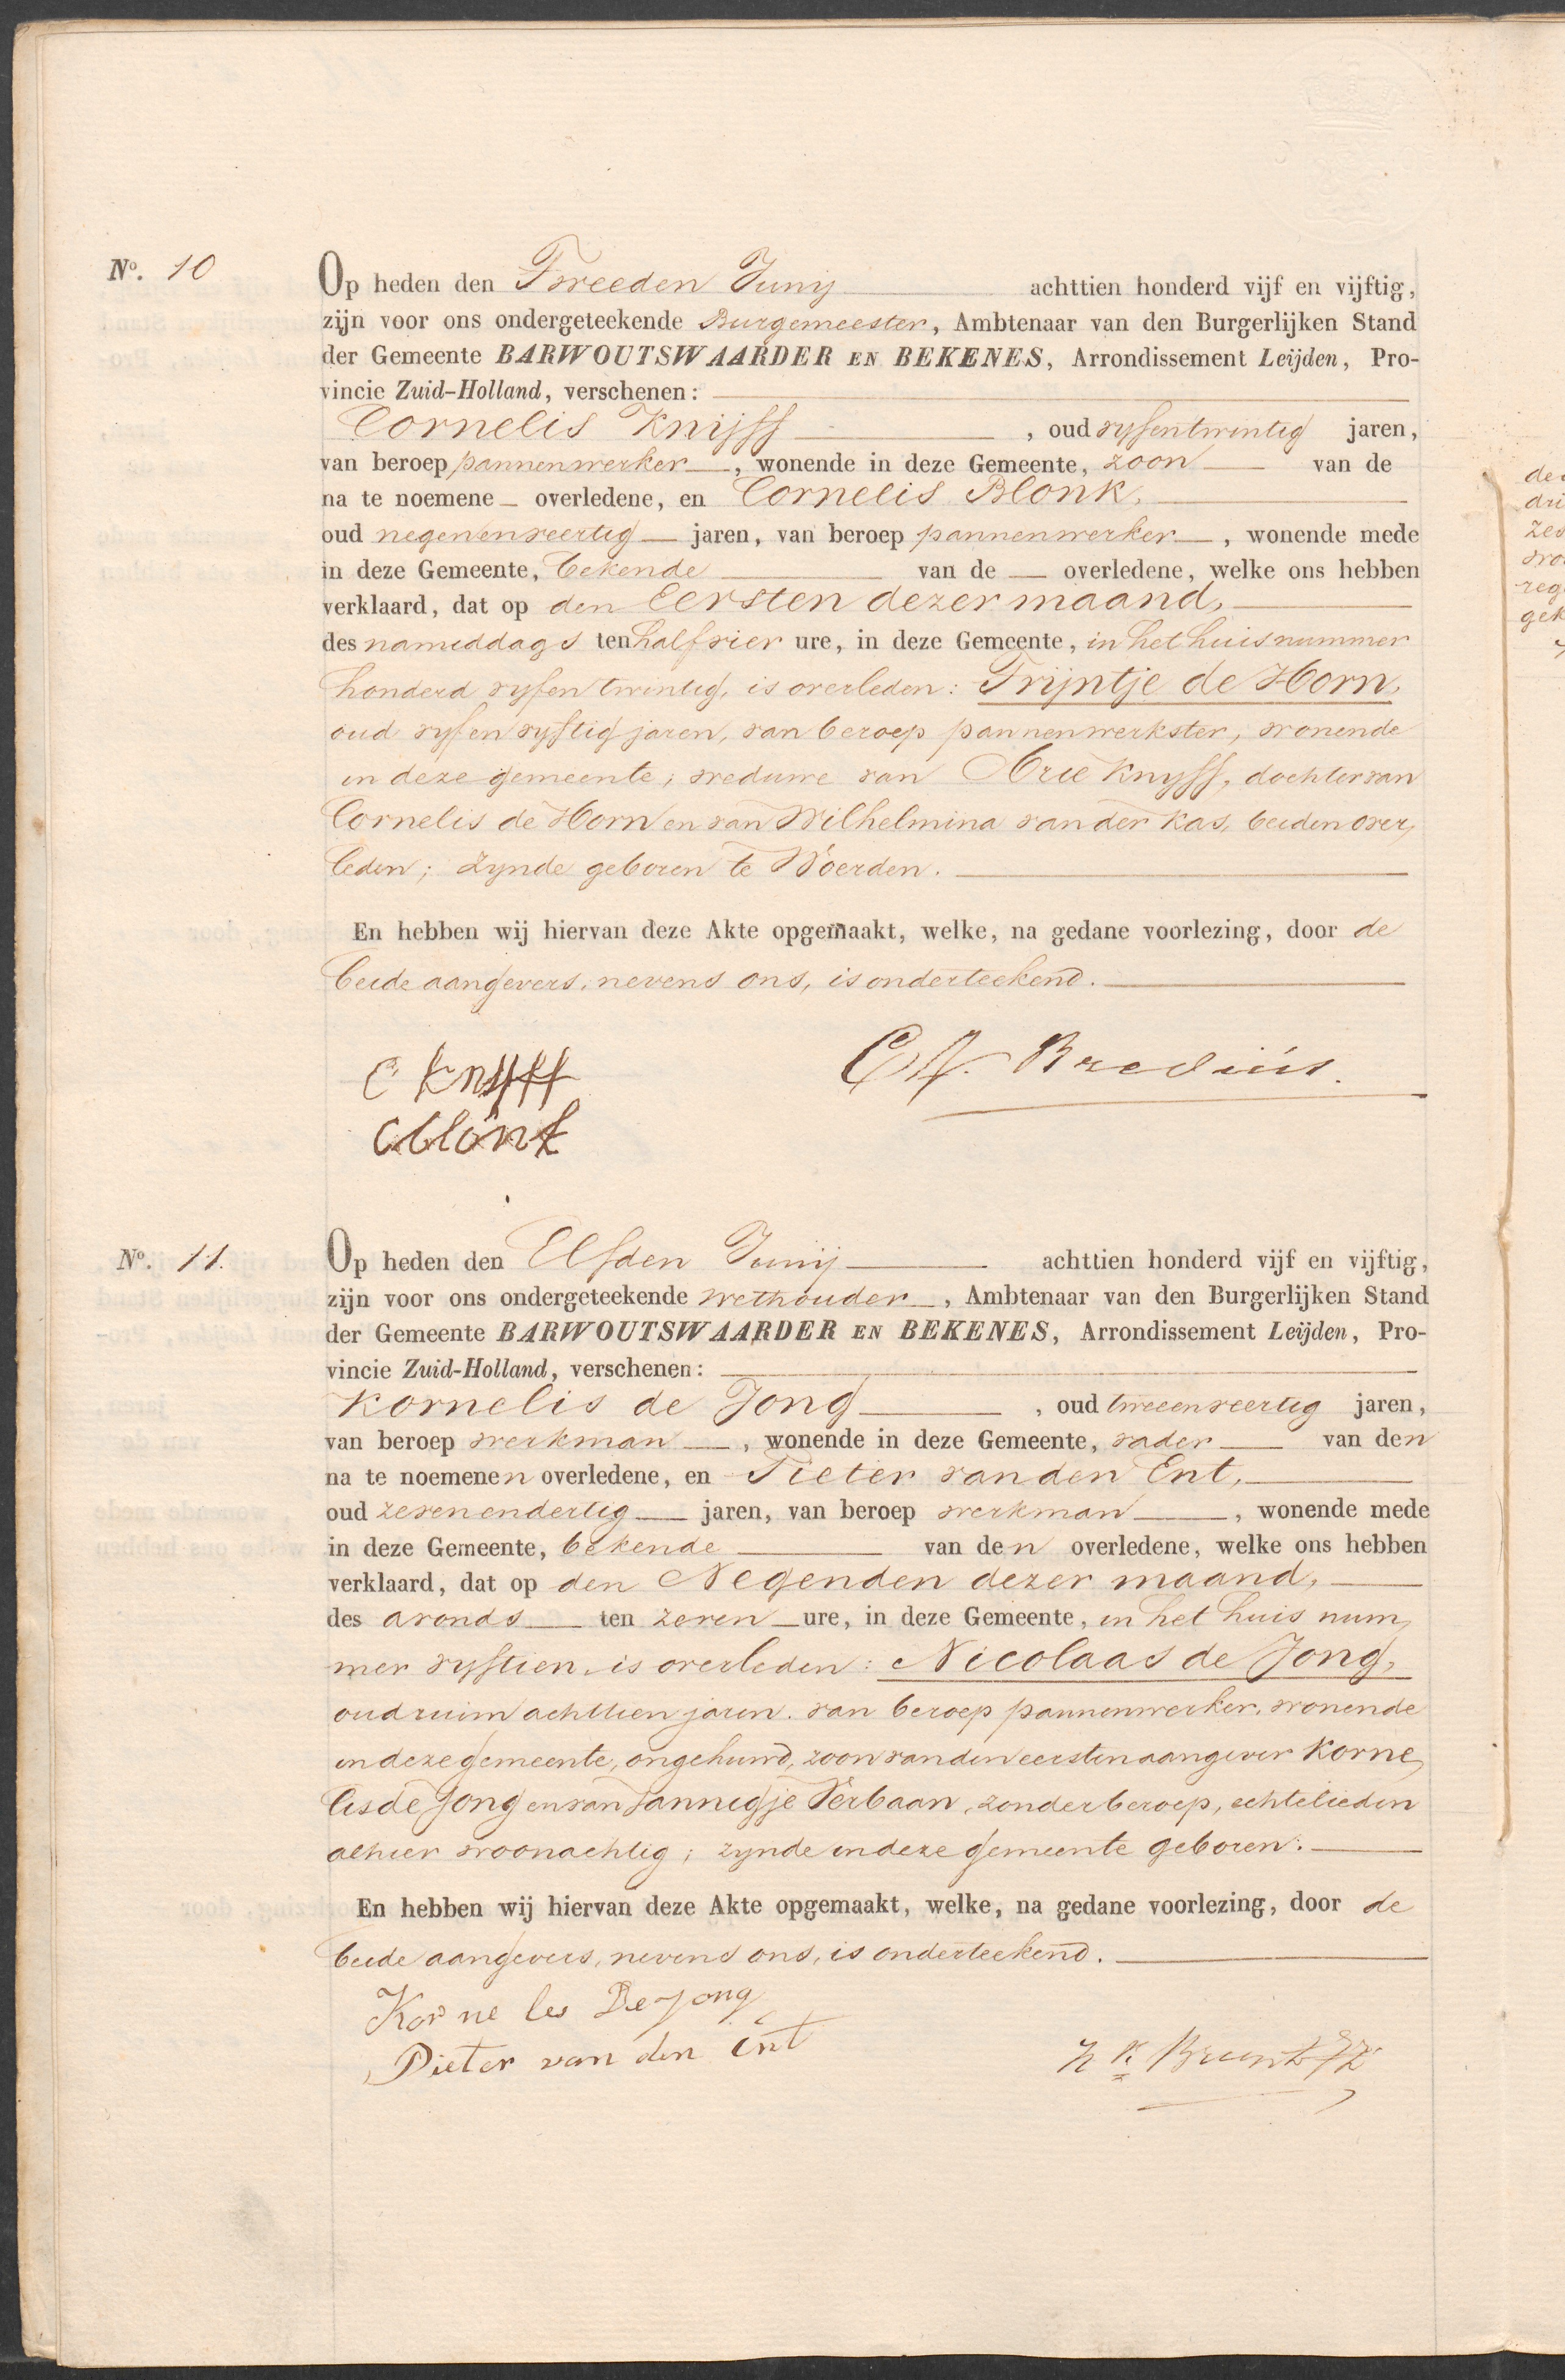 No. 10
Op heden den Tweeden Junij achttien honderd vijf en vijftig,
zijn voor ons ondergeteekende Burgemeester, Ambtenaar van den Burgerlijken Stand
der Gemeente BARWOUTSWAARDER EN BEKENES, Arrondissement Leijden, Pro-
vincie Zuid-Holland, verschenen:
Cornelis Knijff, oud vyfentwintig jaren,
van beroep pannenwerker, wonende in deze Gemeente, zoon van de
na te noemene overledene, en Cornelis Blonk,
oud negenenveertig jaren, van beroep pannenwerker, wonende mede
in deze Gemeente, bekende van de overledene, welke ons hebben
verklaard, dat op den Eersten dezer maand,
des nameddags ten half vier ure, in deze Gemeente, in het huis nummer
honderd vyfen twintig, is overleden: Trijntje de Horn,
oud vyfenvyftig jaren, van beroep pannenwerkster, wonende
in deze gemeente; weduwe van Arie Knyff, dochter van
Cornelis de Horn en van Wilhelmina van der Kas, beiden over,
leden; zynde geboren te Woerden.
En hebben wij hiervan deze Akte opgemaakt, welke, na gedane voorlezing, door de
beide aangevers, nevens ons, is onderteekend.
C Knyff
CBlonk
Bredius.
No. 11.
Op heden den Elfden Junij achttien honderd vijf en vijftig,
zijn voor ons ondergeteekende wethouder, Ambtenaar van den Burgerlijken Stand
der Gemeente BARWOUTSWAARDER EN BEKENES, Arrondissement Leijden, Pro-
vincie Zuid-Holland, verschenen:
Kornelis de Jong, oud tweeenveertig jaren,
van beroep werkman, wonende in deze Gemeente, vader van den
na te noemenen overledene, en Pieter van den Ent,
oud zevenendertig jaren, van beroep werkman, wonende mede
in deze Gemeente, bekende van den overledene, welke ons hebben
verklaard, dat op den Negenden dezer maand,
des avonds ten zeven ure, in deze Gemeente, in het huis num,
mer vyftien, is overleden: Nicolaas de Jong,
oud ruim achttien jaren, van beroep pannenwerker, wonende
in deze gemeente, ongehuwd, zoon van den eersten aangever Korne,
lis de Jong en van Jannigje Verbaan, zonder beroep, echtelieden
alhier woonachtig; zynde in deze gemeente geboren.
En hebben wij hiervan deze Akte opgemaakt, welke, na gedane voorlezing, door de
beide aangevers, nevens ons, is onderteekend.
Kor ne les De Jong
Pieter van den Ent